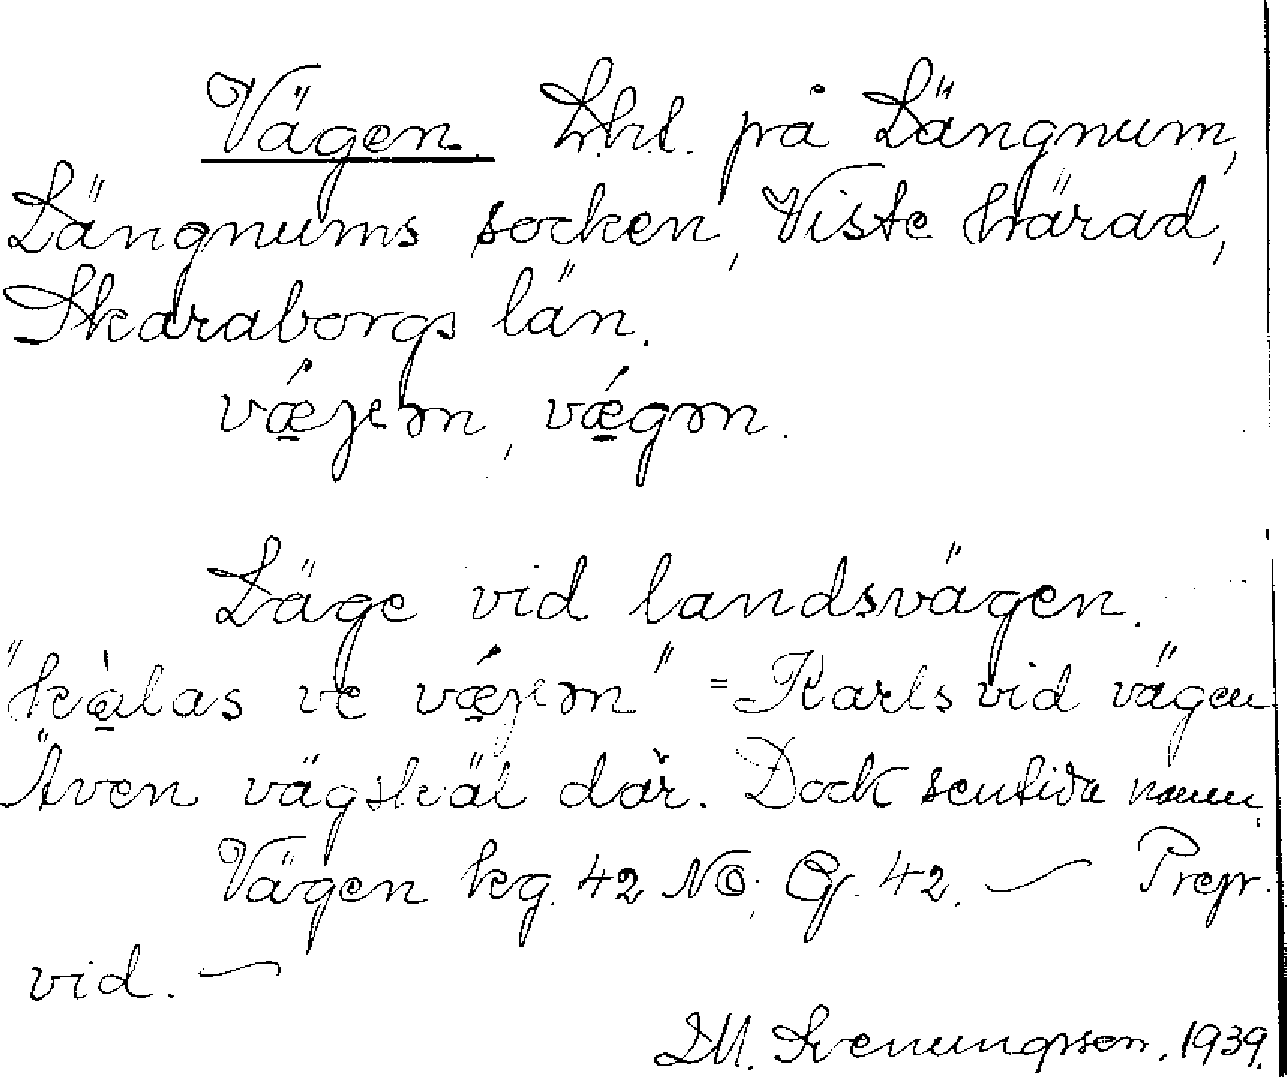 Vägen. Lht. på Längnum,
Längnums socken, Viste härad,
Skaraborgs län.
vǽjen, vǽgən.
Läge vid landsvägen.
"kàlas ve vǽjen" = Karls vid vägen
Även vägskäl där. Dock sentida namn.
Vägen kg. 42 NO; Gf. 42. — Prep.
vid. —
D.M. Svenungsson. 1939.